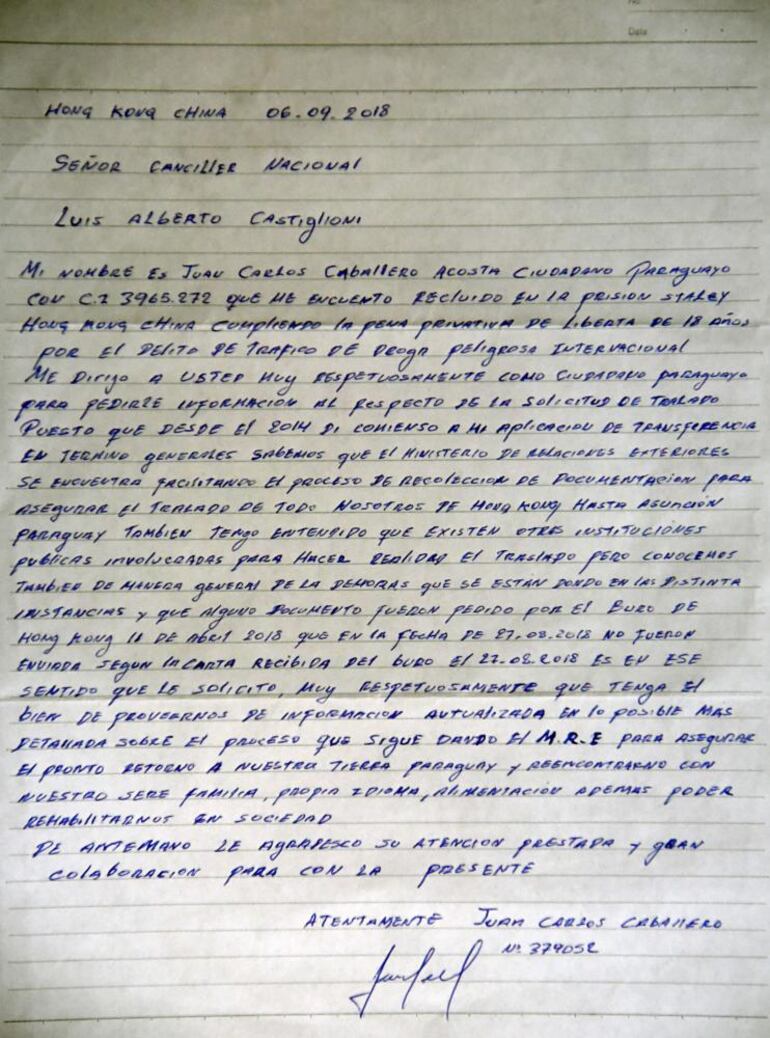 No
Date
HONG KONG CHINA 06.09.2018
SEÑOR CANCILLER NACIONAL
LUIS ALBERTO CASTIGLIONI
MI NOMBRE ES JUAN CARLOS CABALLERO ACOSTA CIUDADANO PARAGUAYO
CON C.I 3965.272 QUE ME ENCUENTO RECLUIDO EN LA PRISION STALEY
HONG KONG CHINA CUMPLIENDO LA PENA PRIVATIVA DE LIBERTA DE 18 AÑOS
POR EL DELITO DE TRAFICO DE DROGA PELIGROSA INTERNACIONAL
ME DIRIGO A USTED MUY RESPETUOSAMENTE COMO CIUDADANO PARAGUAYO
PARA PEDIRLE INFORMACION AL RESPECTO DE LA SOLICITUD DE TRALADO
PUESTO QUE DESDE EL 2014 DI COMIENSO A MI APLICACION DE TRANSFERENCIA
EN TERMINO GENERALES SABEMOS QUE EL MINISTERIO DE RELACIONES EXTERIORES
SE ENCUENTRA FACILITANDO EL PROCESO DE RECOLECCION DE DOCUMENTACION PARA
ASEGURAR EL TRALADO DE TODO NOSOTROS DE HONG KONG HASTA ASUNCIÓN
PARAGUAY TAMBIEN TENGO ENTENDIDO QUE EXISTEN OTRE INSTITUCIÓNES
PUBLICAS INVOLUCRADAS PARA HACER REALIDAD EL TRASLADO PERO CONOCEMOS
TAMBIEN DE MANERA GENERAL DE LA DEMORAS QUE SE ESTÁN DONDO EN LAS DISTINTA
INSTANCIAS Y QUE ALGUNO DOCUMENTO FUERON PEDIDO POR EL BURO DE
HONG KONG 11 DE ABRIL 2018 QUE EN LA FECHA DE 27.08.2018 NO FUERON
ENVIADA SEGUN LA CARTA RECIBIDA DEL BURO EL 27.08.2018 ES EN ESE
SENTIDO QUE LE SOLICITO, MUY RESPETUOSAMENTE QUE TENGA EL
BIEN DE PROVEERNOS DE INFORMACION AUTUALIZADA EN LO POSIBLE MAS
DETALLADA SOBRE EL PROCESO QUE SIGUE DANDO EL M.R.E PARA ASEGURAR
EL PRONTO RETORNO A NUESTRA TIERRA PARAGUAY Y REENCONTRARNO CON
NUESTRO SERE FAMILIA, PROPIA IDIOMA, ALIMENTACIÓN ADEMAS PODER
REHABILITARNOS EN SOCIEDAD
DE ANTEMANO LE AGRADESCO SU ATENCION PRESTADA Y GRAN
COLABORACION PARA CON LA PRESENTE
ATENTAMENTE JUAN CARLOS CABALLERO
Nº 379052